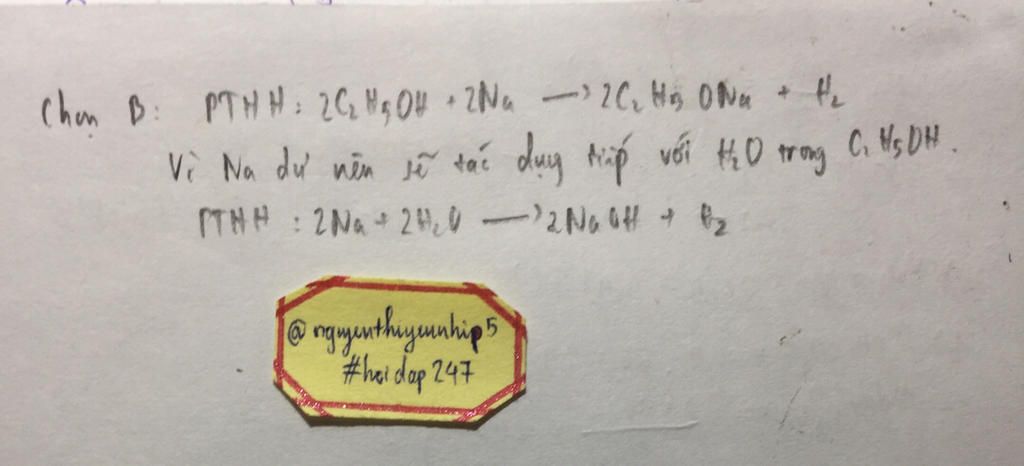 Chọn B: PTHH: 2C₂H₅OH + 2Na → 2C₂H₅ONa + H₂
Vì Na dư nên sẽ tác dụng tiếp với H₂O trong C₂H₅OH.
PTHH: 2Na + 2H₂O → 2NaOH + H₂
@nguyenthiyennhip5
#hoidap247